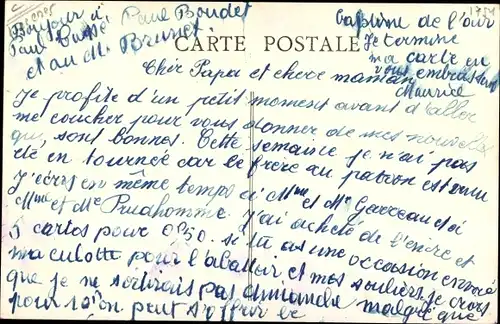 Bonjour à Paul Boudet
Paul
et au M. Brunet
CARTE POSTALE
Cher Papa et chere maman
Je profite d'un petit moment avant d'aller
me coucher pour vous donner de mes nouvelles
qui, sont bonnes. Cette semaine je n'ai pas
été en tournée car le frère au patron est venu
J'écris en même temps à Mme et Mr et à
Mme et Mr Prudhomme. J'ai acheté de l'encre et
5 cartes pour 0F50. si tu as une occasion envoie
ma culotte pour l'abattoir et mes souliers je crois
que je ne sortirais pas dimanche malgré que
pour s'offrir le
de l'air
Je termine
ma carte en
vous embrassant
Maurice